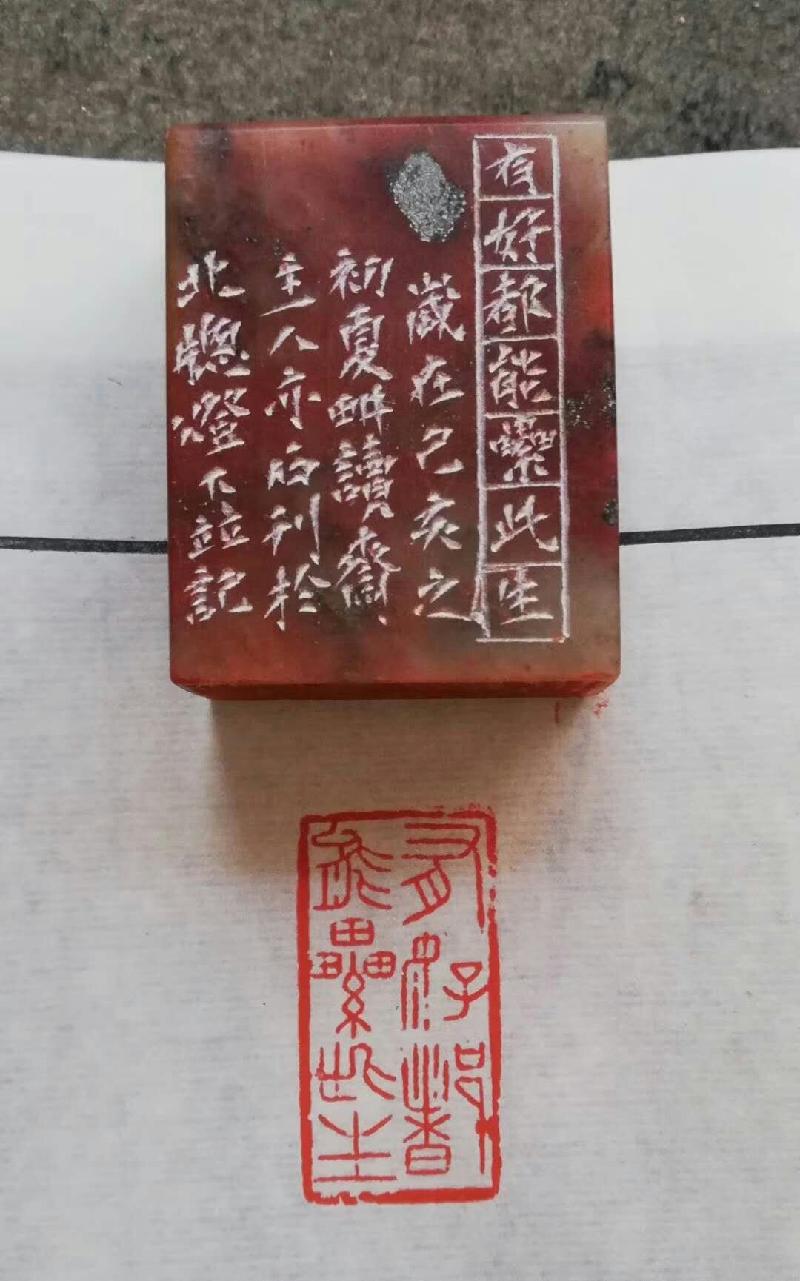 有好都能纍此生
歲在己亥之
初夏畊讀齋
主人亦白刊於
北窻燈下並記
有好都
能纍此生